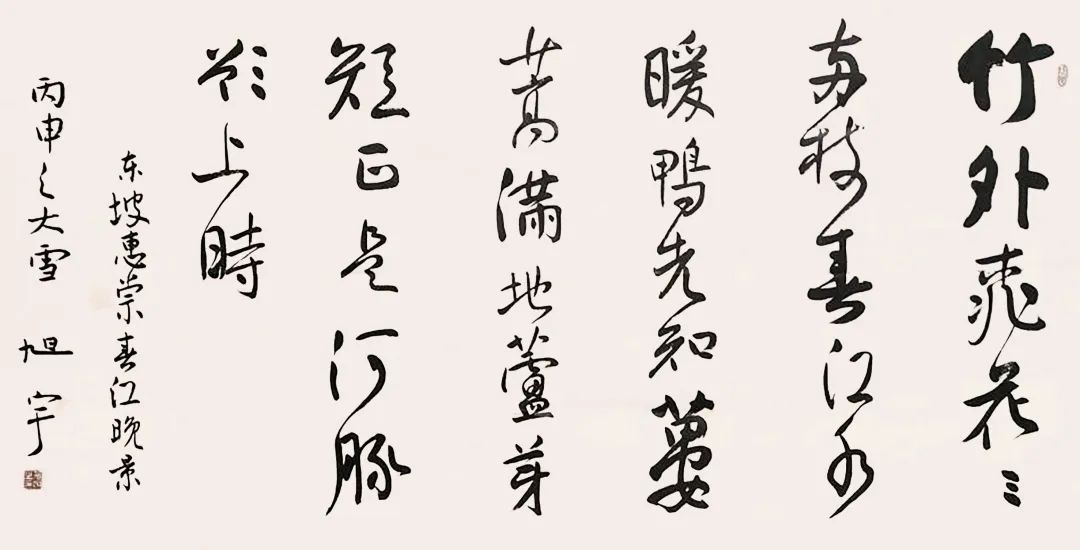 竹外桃花三
两枝春江水
暖鴨先知蔞
蒿滿地蘆芽
短正是河豚
欲上時
东坡惠崇春江晚景
丙申之大雪 旭宇